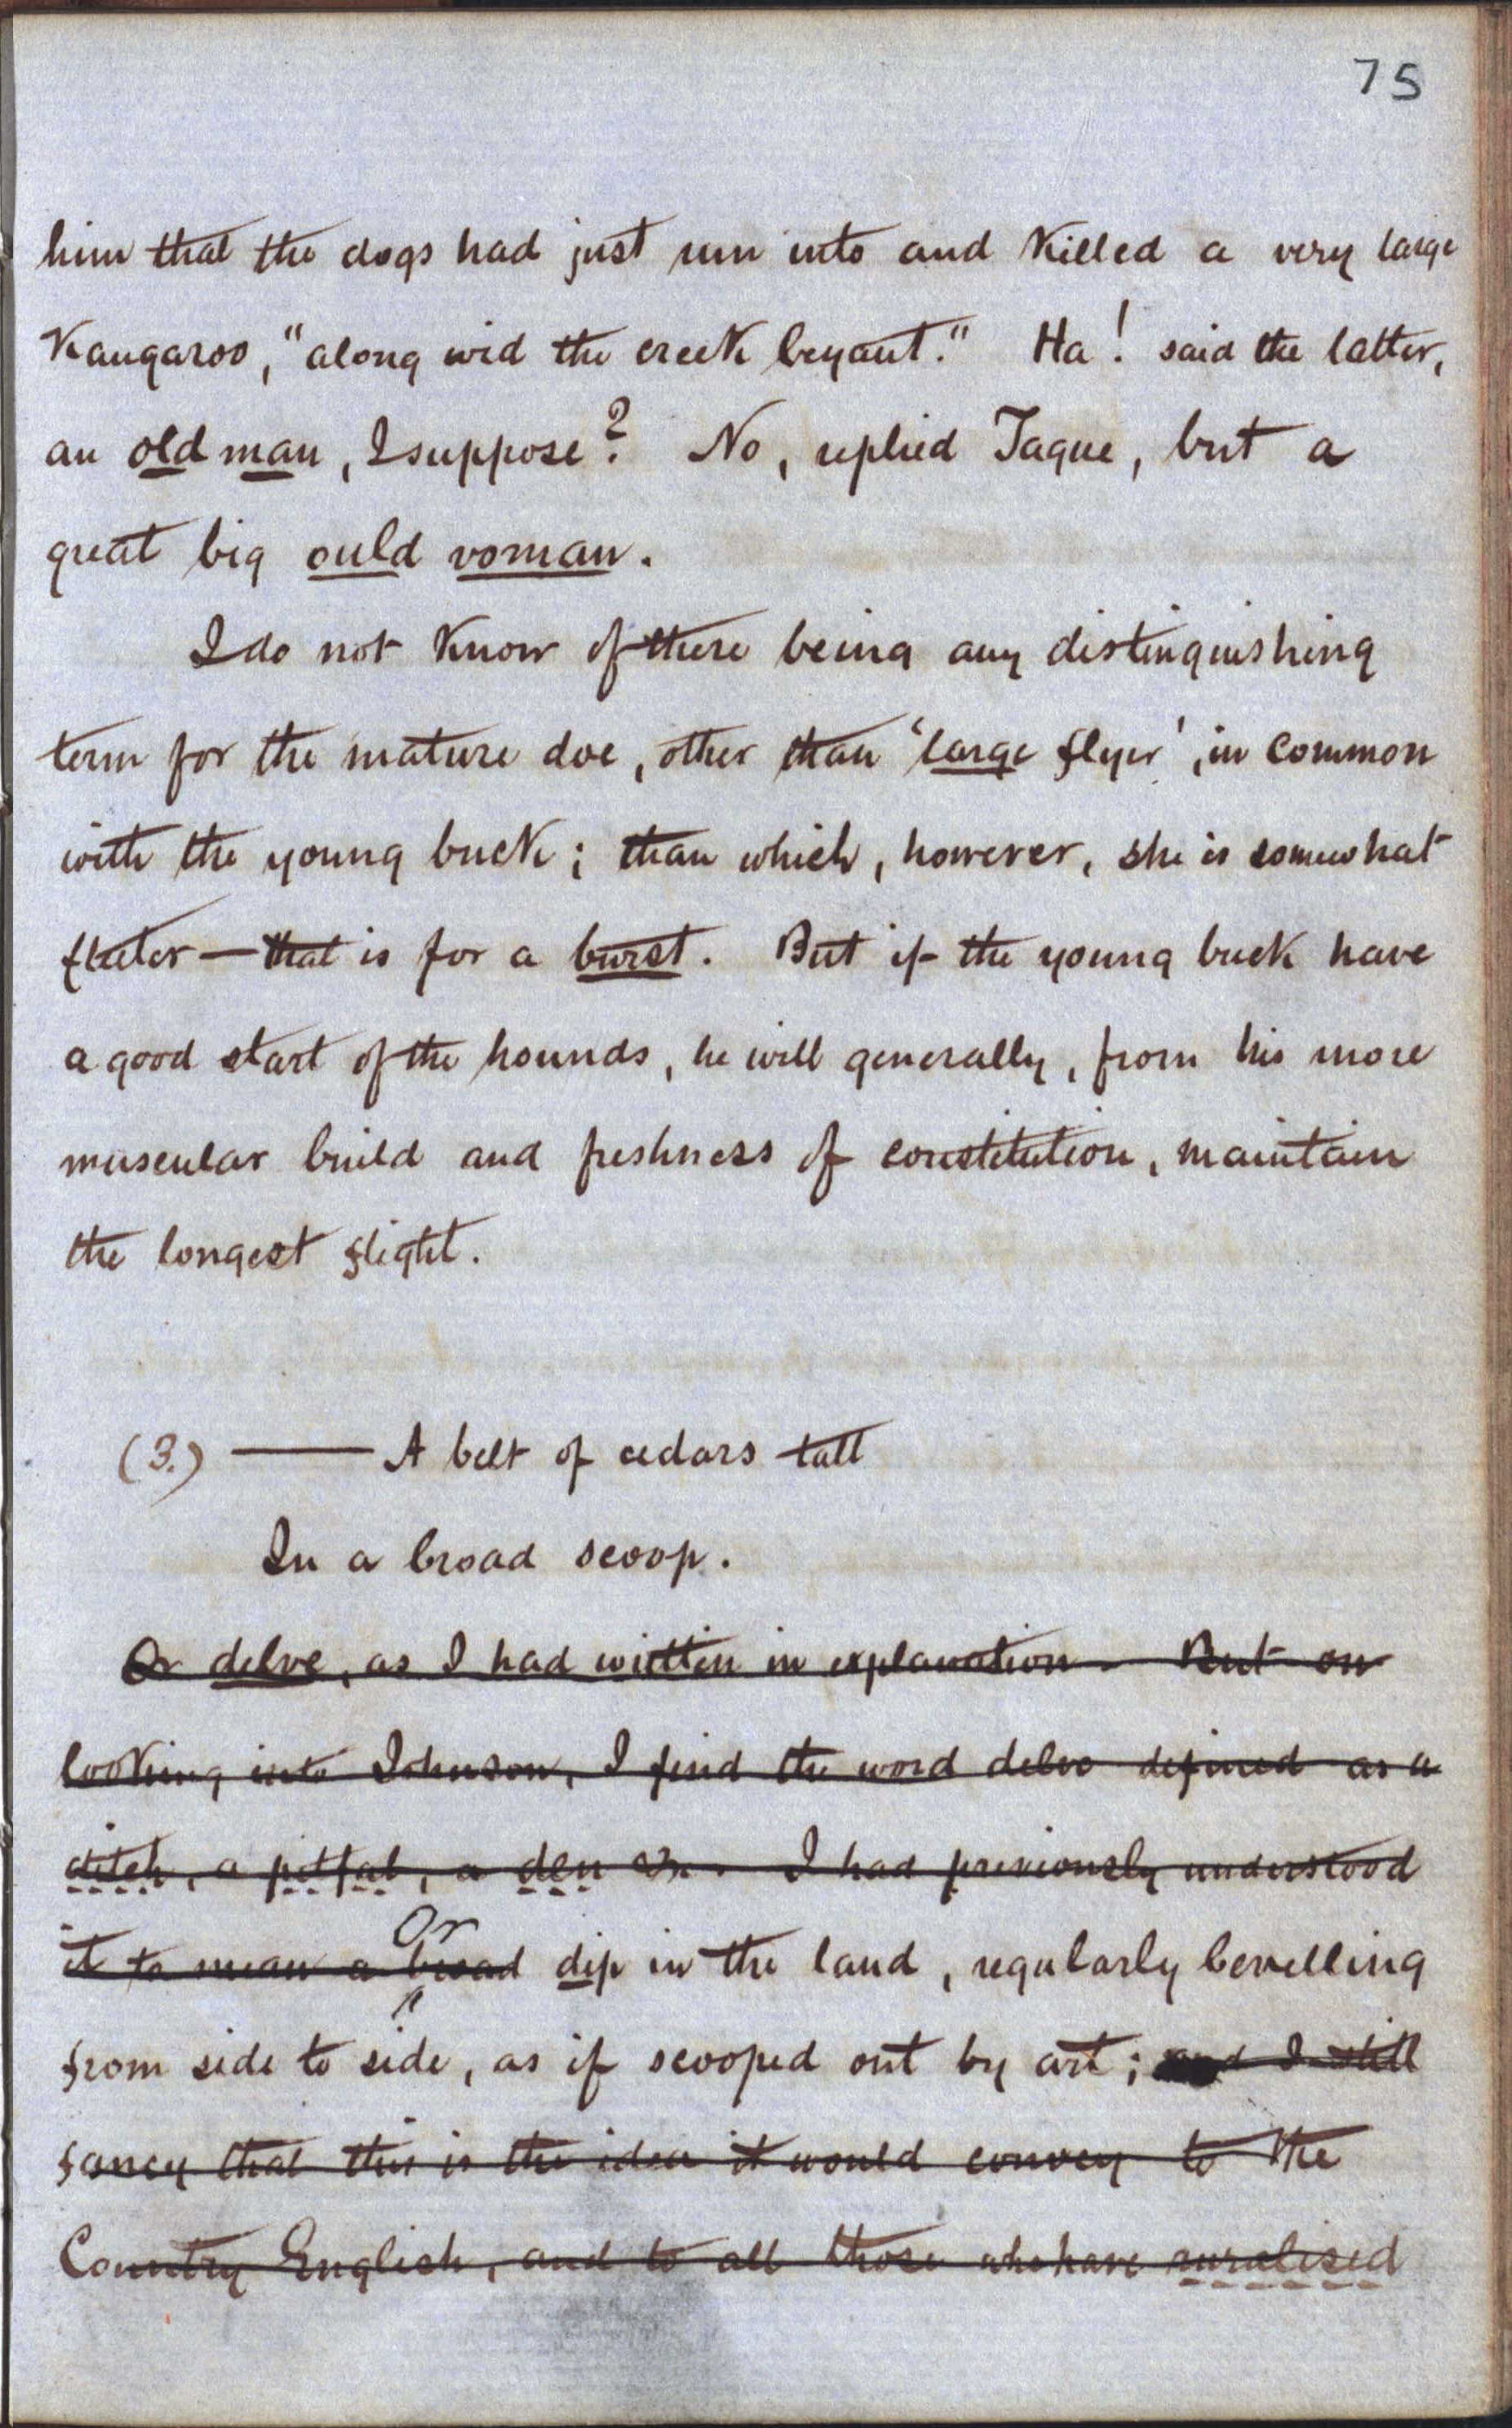 75
him that the dogs had just run into and killed a very large
Kangaroo, "along wid the creek beyant." Ha! said the latter,
an old man, I suppose? No, replied Tague, but a
great big ould woman.
I do not know of there being any distinguishing
term for the mature doe, other than 'large flyer', in common
with the young buck; than which, however, she is somewhat
fleeter — that is for a burst. But if the young buck have
a good start of the hounds, he will generally, from his more
muscular build and freshness of constitution, maintain
the longest flight.
(3.) —— A belt of cedars tall
In a broad scoop.
Or delve, as I had written in explanation. But on
looking into Johnson, I find the word delve defined as a
ditch, a pitfal, a den &c. I had previously understood
Or
it to mean a broad dip in the land, regularly bevelling
from side to side, as if scooped out by art; and I still
fancy that this is the idea it would convey to the
Country English, and to all those who have ruralised